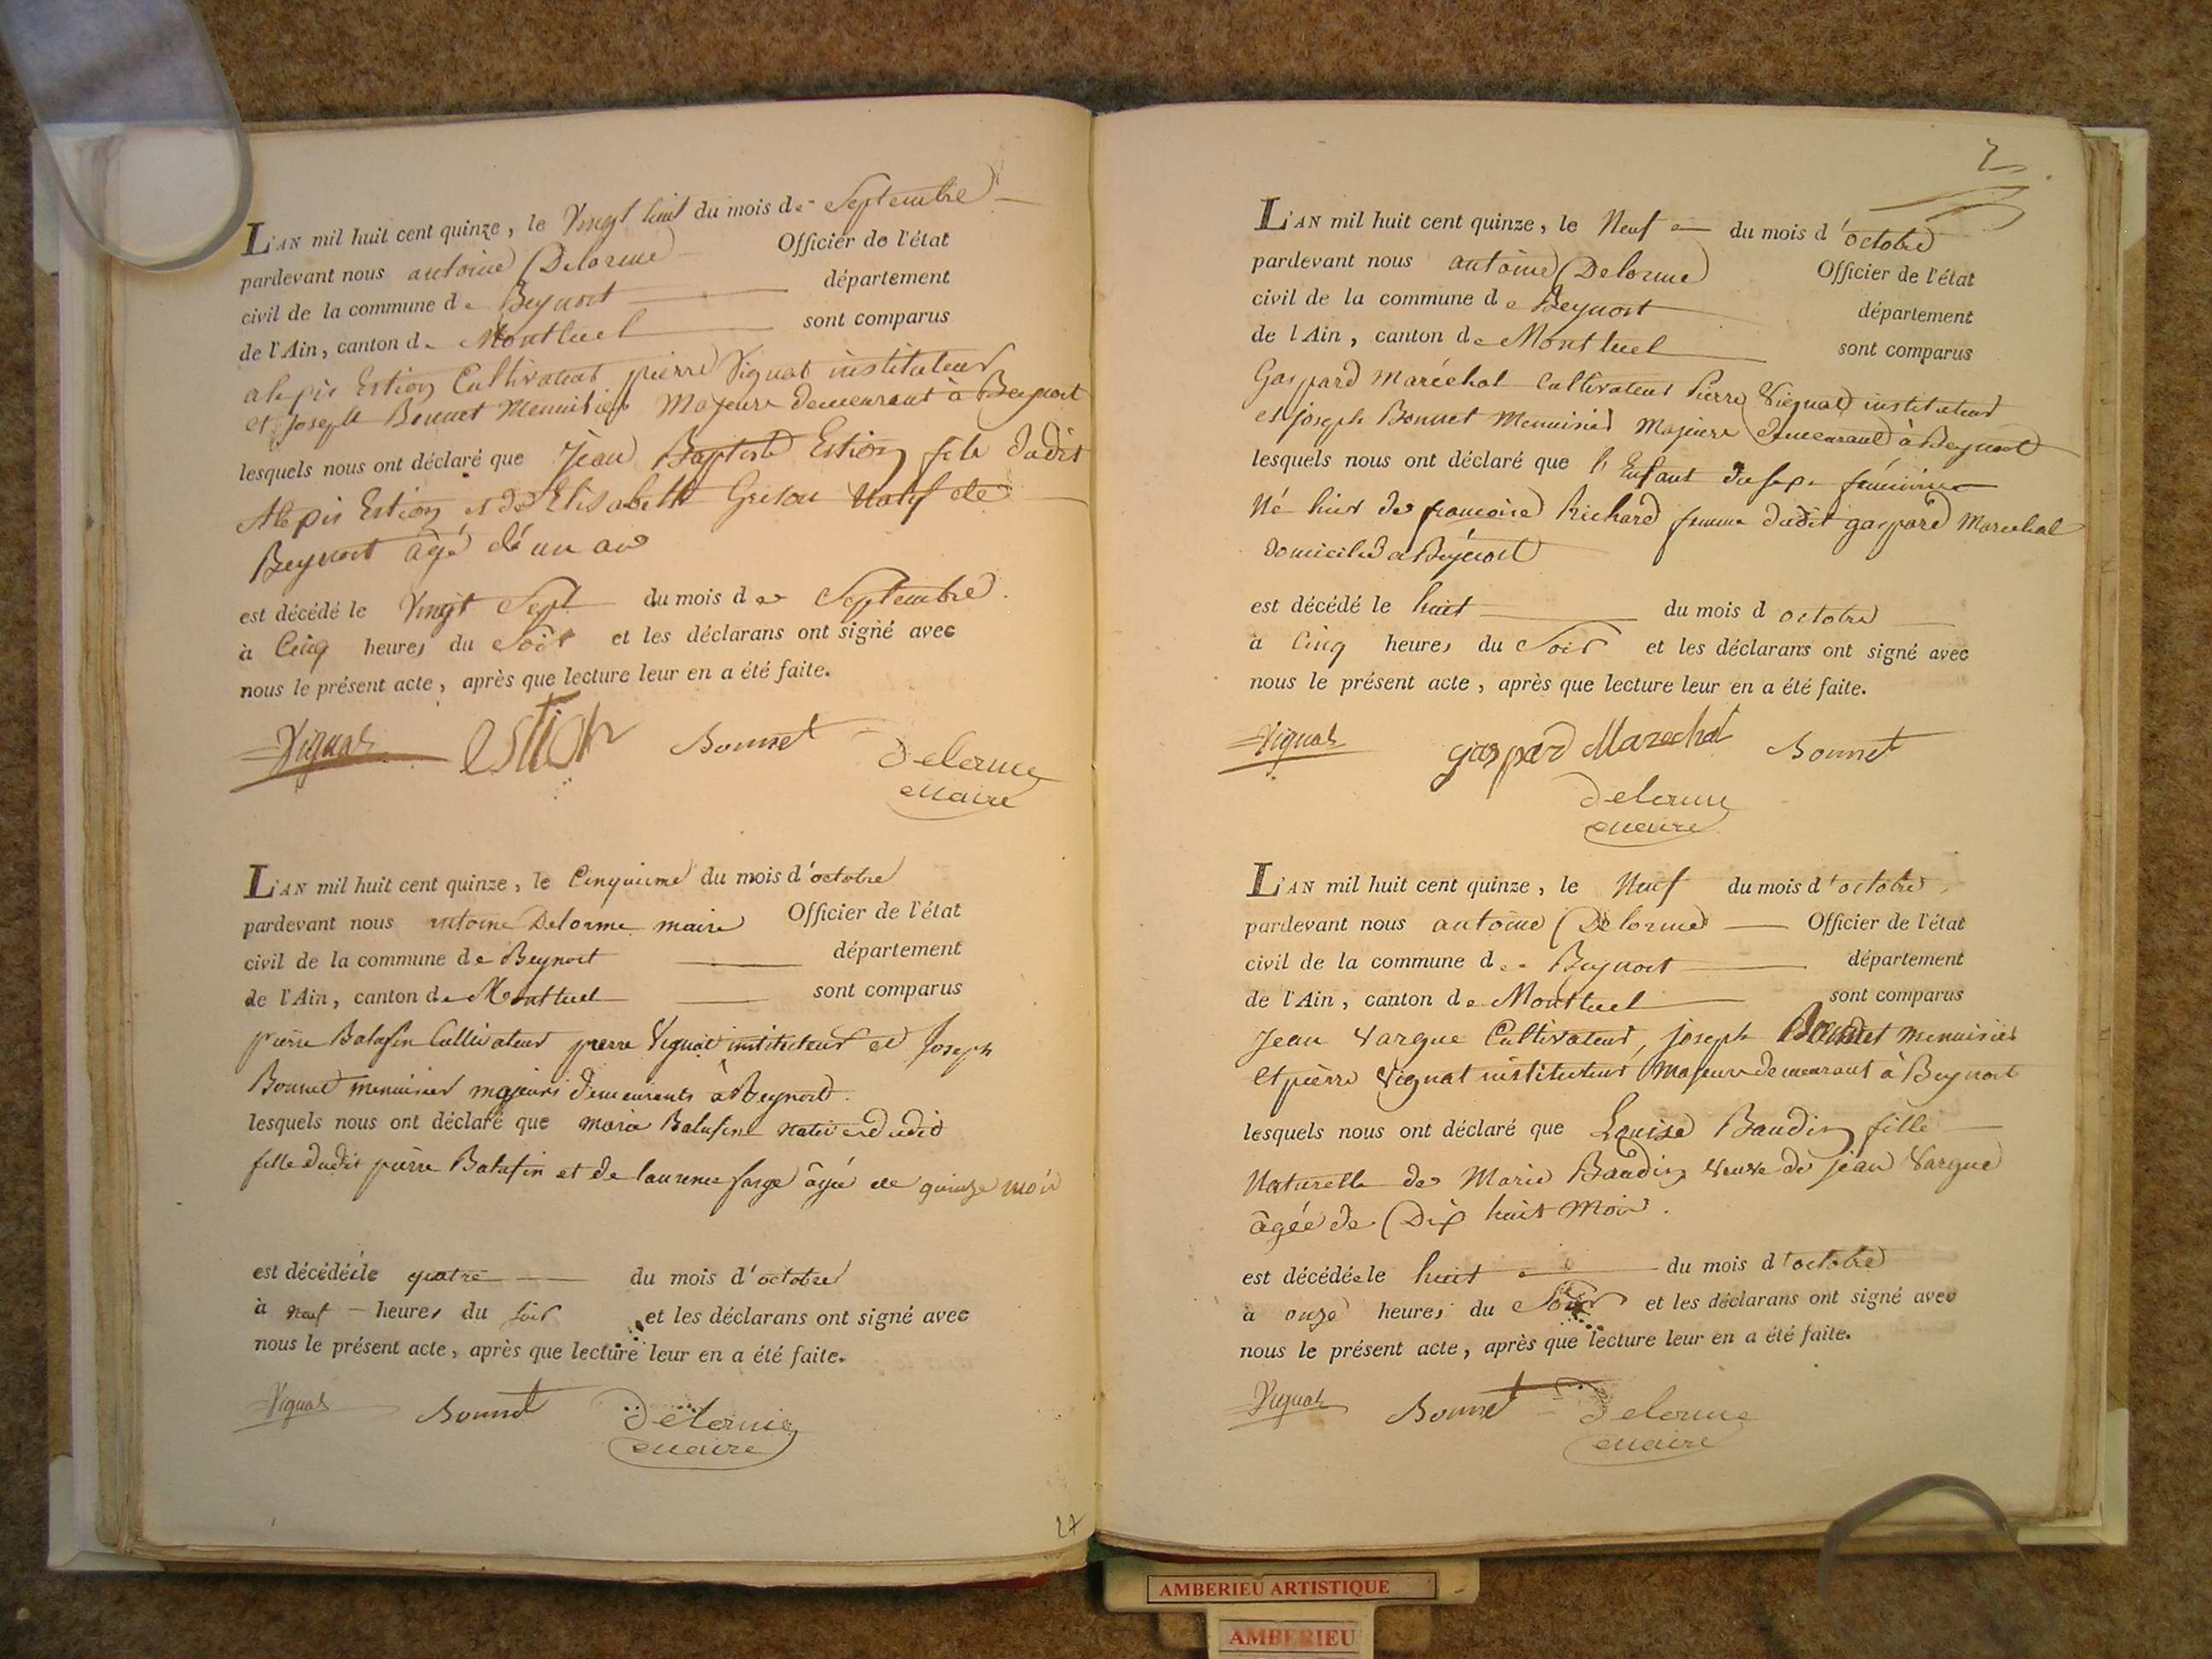 L'AN mil huit cent quinze, le Vingt huit du mois de Septembre
pardevant nous antoine Delorme Officier de l'état
civil de la commune de Beynost département
de l'Ain, canton de Montluel sont comparus
alepis Estion Cultivateur pierre Vignat instituteur
et Joseph Bonnet Menuisier Majeurs demeurant à Beynost
lesquels nous ont déclaré que Jean Baptiste Estion fils dudit
Alepis Estion et de Elisabeth Grison Natif de
Beynost âgé d'un an
est décédé le Vingt Sept du mois de Septembre
à Cinq heures du Soir et les déclarans ont signé avec
nous le présent acte, après que lecture leur en a été faite.
Vignat estion Bonnet Delorme
Maire
L'AN mil huit cent quinze, le Cinquieme du mois d'octobre
pardevant nous antoine Delorme maire Officier de l'état
civil de la commune de Beynost département
de l'Ain, canton de Montluel sont comparus
pierre Balafin Cultivateur pierre Vignat instituteur et Joseph
Bonnet menuisier majeurs demeurants à Beynost.
lesquels nous ont déclaré que marie Balafin native dudit
fille dudit pierre Balafin et de laurence farge âgée de quinze mois
est décédée le quatre du mois d'octobre
à neuf heures du soir et les déclarans ont signé avec
nous le présent acte, après que lecture leur en a été faite.
Vignat Bonnet Delorme
Maire
27
2
L'AN mil huit cent quinze, le Neuf du mois d'octobre
pardevant nous antoine Delorme Officier de l'état
civil de la commune de Beynost département
de l'Ain, canton de Montluel sont comparus
Gaspard Maréchal Cultivateur Pierre Vignat instituteur
et joseph Bonnet Menuisier Majeurs demeurant à Beynost
lesquels nous ont déclaré que l'Enfant du sexe féminin
Né hier de francoise Richard femme dudit gaspard Marechal
domicilié a Beynost
est décédé le huit du mois d octobre
à Cinq heures du Soir et les déclarans ont signé avec
nous le présent acte, après que lecture leur en a été faite.
Vignat gaspard Marechal Bonnet
Delorme
Maire
L'AN mil huit cent quinze, le Neuf du mois d'octobre
pardevant nous antoine Delorme Officier de l'état
civil de la commune de Beynost département
de l'Ain, canton de Montluel sont comparus
Jean Vargue Cultivateur, joseph Bonnet Menuisier
et pierre Vignat instituteur Majeurs demeurant à Beynost
lesquels nous ont déclaré que Louise Baudin fille
Naturelle de Marie Baudin veuve de jean Vargue
âgée de Dix huit Mois.
est décédée le huit du mois d'octobre
à onze heures du Soir et les déclarans ont signé avec
nous le présent acte, après que lecture leur en a été faite.
Vignat Bonnet Delorme
Maire
AMBERIEU ARTISTIQUE
AMBERIEU